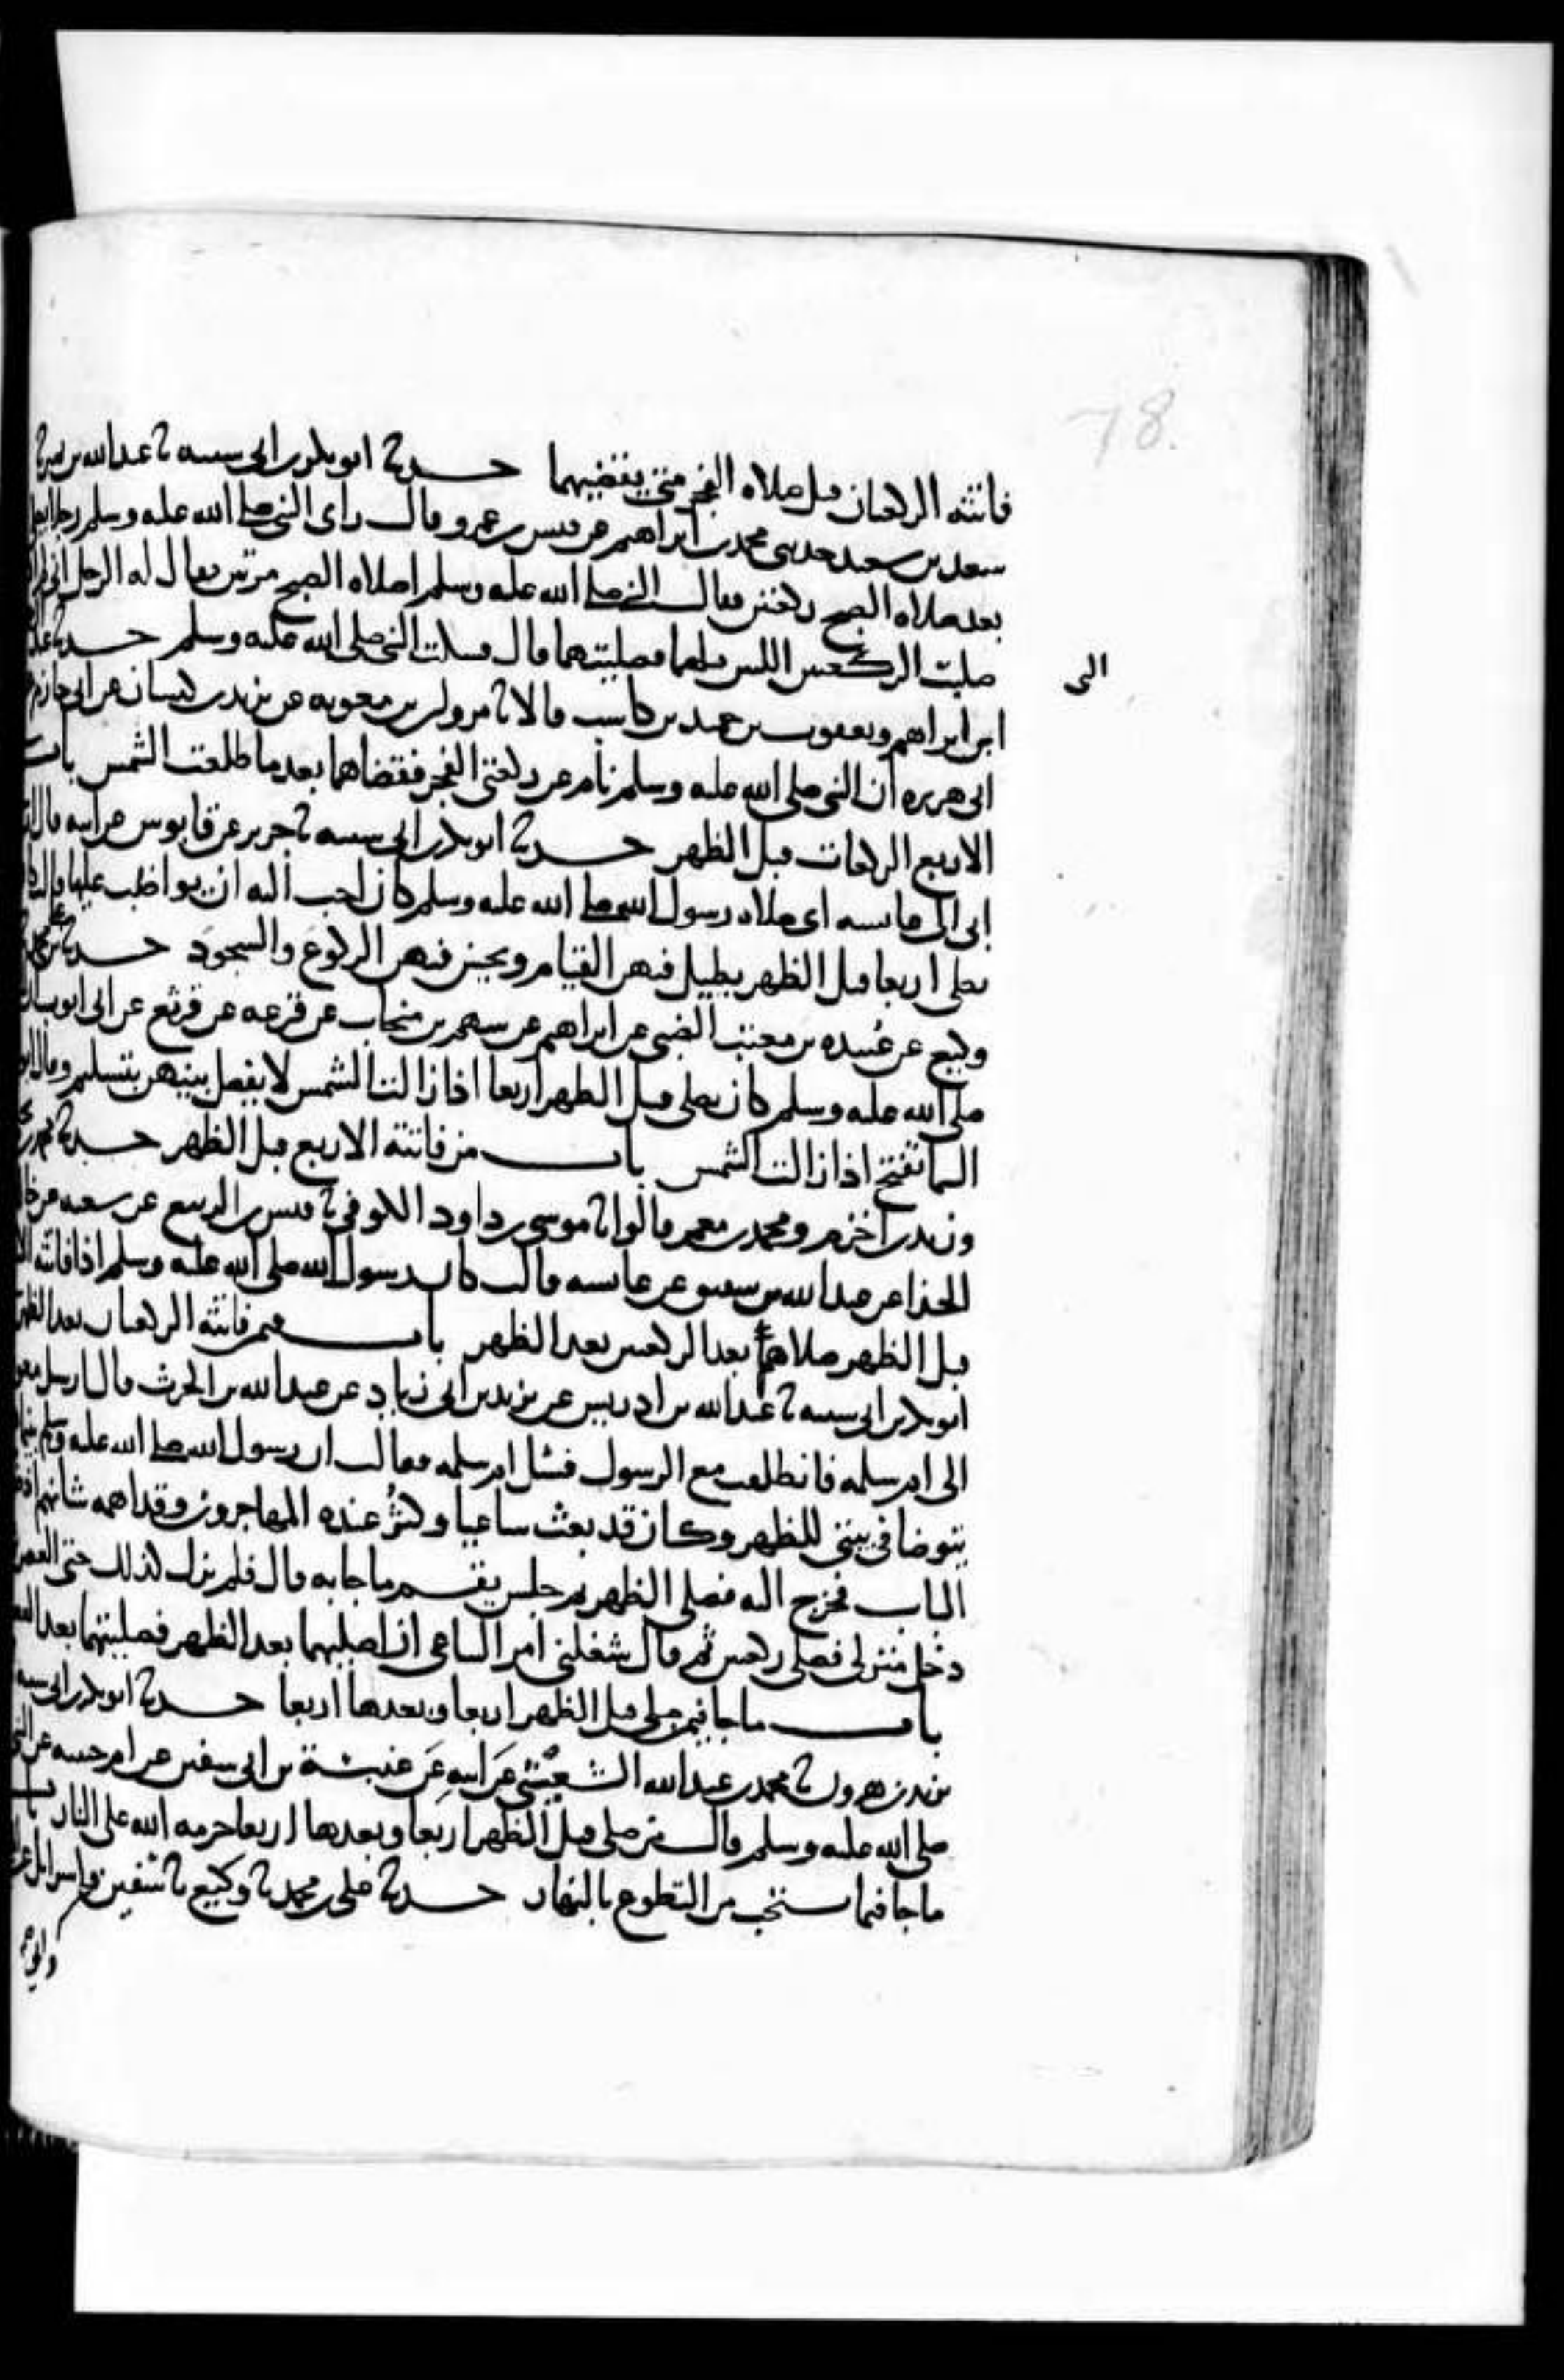 78.
فاتته الركعتان قبل صلاه الفجر متى يقضيهما حدثنا ابو بكر بن ابي شيبه ثنا عبد الله بن نمير ثنا
سعد بن سعيد حدثني محمد بن ابراهيم عن قيس بن عمرو قال راى النبي صلى الله عليه وسلم رجلا يصلي
بعد صلاه الصبح ركعتين فقال النبي صلى الله عليه وسلم اصلاه الصبح مرتين فقال له الرجل اني لم اكن
صليت الركعتين اللتين قبلهما فصليتهما قال فسكت النبي صلى الله عليه وسلم حدثنا عبد
الى
ابن ابراهيم ويعقوب بن حميد بن كاسب قالا ثنا مروان بن معويه عن يزيد بن كيسان عن ابي حازم
ابي هريره ان النبي صلى الله عليه وسلم نام عن ركعتي الفجر فقضاهما بعد ما طلعت الشمس باب
الاربع الركعات قبل الظهر حدثنا ابو بكر بن ابي شيبه ثنا جرير عن قابوس عن ابيه قال
ابي الى عائشه اي صلاه رسول الله صلى الله عليه وسلم كان احب اليه ان يواظب عليها قالت
يصلي اربعا قبل الظهر يطيل فيهن القيام ويحسن فيهن الركوع والسجود حدثنا
وكيع عن عبيده بن معتب الضبي عن ابراهيم عن سهم بن منجاب عن قزعه عن قرثع عن ابي ايوب
صلى الله عليه وسلم كان يصلي قبل الظهر اربعا اذا زالت الشمس لا يفصل بينهن بتسليم وقال
السما تفتح اذا زالت الشمس باب من فاتته الاربع قبل الظهر حدثنا محمد بن
وزيد بن اخزم ومحمد بن معمر قالوا ثنا موسى بن داود الكوفي ثنا قيس بن الربيع عن شعبه عن خالد
الحذا عن عبد الله بن شقيق عن عائشه قالت كان رسول الله صلى الله عليه وسلم اذا فاتته
قبل الظهر صلاها بعد الركعتين بعد الظهر باب فيمن فاتته الركعتان بعد الظهر
ابو بكر بن ابي شيبه ثنا عبد الله بن ادريس عن يزيد بن ابي زياد عن عبد الله بن الحرث قال ارسل
الى ام سلمه فانطلقت مع الرسول فسئل ام سلمه فقالت ان رسول الله صلى الله عليه وسلم بينما
يتوضا في بيتي للظهر وكان قد بعث ساعيا وكثر عنده المهاجرون وقد اهمه شانهم اذ
الباب فخرج اليه فصلى الظهر ثم جلس يقسم ما جا به قال فلم يزل كذلك حتى العصر
دخل منزلي فصلى ركعتين ثم قال شغلني امر الساعي ان اصليهما بعد الظهر فصليتهما بعد العصر
باب ما جا فيمن صلى قبل الظهر اربعا وبعدها اربعا حدثنا ابو بكر بن ابي شيبه
يزيد بن هرون ثنا محمد بن عبد الله الشعيثي عن ابيه عن عنبسة بن ابي سفين عن ام حبيبه عن النبي
صلى الله عليه وسلم قال من صلى قبل الظهر اربعا وبعدها اربعا حرمه الله على النار باب
ما جا فيما يستحب من التطوع بالنهار حدثنا علي بن محمد ثنا وكيع ثنا سفين واسرائل عن